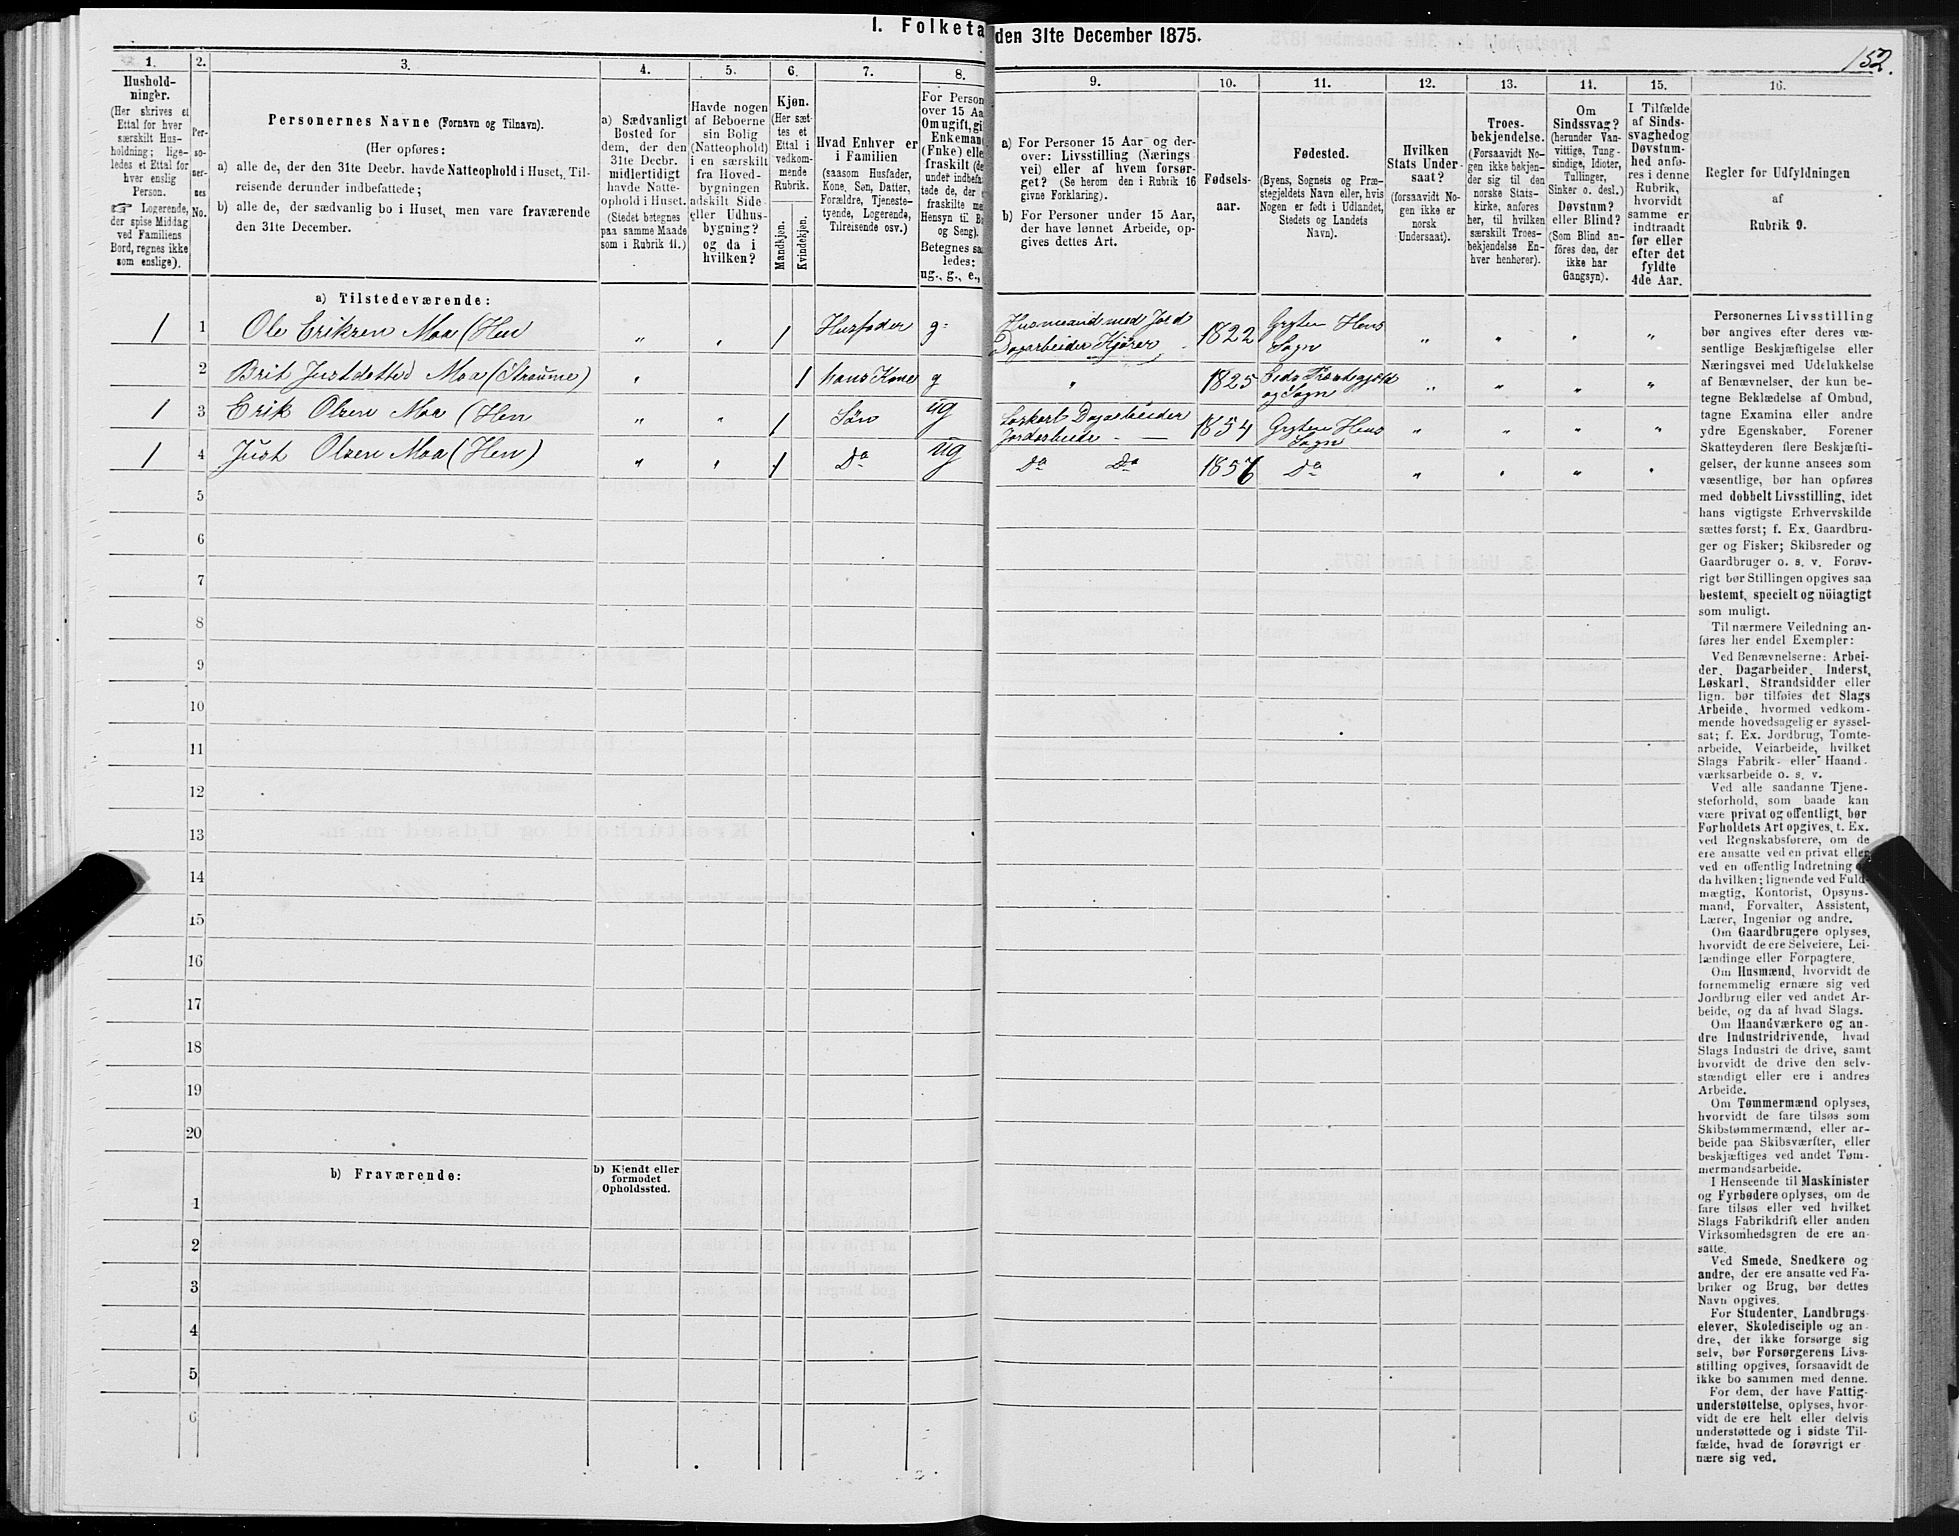 I. Folketa
den 31te December 1875.
152.
1.
Hushold-
ninger.
(Her skrives et
Ettal for hver
særskilt Hus-
holdning; lige-
ledes et Ettal for
hver enslig
Person.
Logerende,
der spise Middag
ved Familiens
Bord, regnes ikke
som enslige).
2.
Per-
so-
ner-
nes
No.
3.
Personernes Navne (Fornavn og Tilnavn).
(Her opføres:
a) alle de, der den 31te Decbr. havde Natteophold i Huset, Til-
reisende derunder indbefattede;
b) alle de, der sædvanlig bo i Huset, men vare fraværende
den 31te December.
4.
a) Sædvanligt
Bosted for
dem, der den
31te Decbr.
midlertidigt
havde Natte-
ophold i Huset.
(Stedet betegnes
paa samme Maade
som i Rubrik 11.)
5.
Havde nogen
af Beboerne
sin Bolig
(Natteophold)
i en særskilt
fra Hoved-
bygningen
adskilt Side-
eller Udhus-
bygning?
og da i
hvilken?
6.
Kjøn.
(Her sæt-
tes et
Ettal i
vedkom-
mende
Rubrik.
Mandkjøn.
Kvindekjøn.
7.
Hvad Enhver er
i Familien
(saasom Husfader,
Kone, Søn, Datter,
Forældre, Tjeneste-
tyende, Logerende,
Tilreisende osv.)
8.
For Person
over 15 Aa
Om ugift, gi
Enkemand
(Fnke) elle
fraskilt (de
under indbefa
tede de, der
fraskilte me
Hensyn til Bo
og Seng).
Betegnes saa
ledes:
ug., g., e.,
9.
a) For Personer 15 Aar og der-
over: Livsstilling (Nærings
vei) eller af hvem forsør-
get? (Se herom den i Rubrik 16
givne Forklaring).
b) For Personer under 15 Aar,
der have lønnet Arbeide, op-
gives dettes Art.
10.
Fødsels-
aar.
11.
Fødested.
(Byens, Sognets og Præ-
stegjeldets Navn eller, hvis
Nogen er født i Udlandet,
Stedets og Landets
Navn).
12.
Hvilken
Stats Under-
saat?
(forsaavidt No-
gen ikke er
norsk
Undersaat).
13.
Troes-
bekjendelse.
(Forsaavidt No-
gen ikke bekjen-
der sig til den
norske Stats-
kirke, anføres
her, til hvilken
særskilt Troes-
bekjendelse En-
hver henhører).
14.
Om
Sindssvag?
(herunder Van-
vittige, Tung-
sindige, Idioter,
Tullinger,
Sinker o. desl.)
Døvstum?
eller Blind?
(Som Blind an-
føres den, der
ikke har
Gangsyn).
15.
I Tilfælde
af Sinds-
svaghed og
Døvstum-
hed anfø-
res i denne
Rubrik,
hvorvidt
samme er
indtraadt
før eller
efter det
fyldte
4de Aar.
16.
Regler for Udfyldningen
af
Rubrik 9.
a) Tilstedeværende:
1 1 Ole Eriksen Moa (Hen „ „ 1 Husfader g: Husmand med Jord 1822 Gryten Hens „ „ „ „
Dagarbeider Kjører Sogn
2 Brit Justdatter Moa (Straume) „ 1 hans Kone g „ 1825 Præstegjeld „ „ „ „
og Sogn
1 3 Erik Olsen Moa (Hen „ „ 1 Søn ug Løskarl Dagarbeider 1854 Gryten Hens „ „ „ „
Jordarbeide Sogn
1 4 Just Olsen Moa (Hen) „ „ 1 Do ug Do Do 185 Do „ „ „ „
5
6
7
8
9
10
11
12
13
14
15
16
17
18
19
20
b) Fraværende:
b) Kjendt eller
formodet
Opholdssted.
1
2
3
4
5
6
Personernes Livsstilling
bør angives efter deres væ-
sentlige Beskjæftigelse eller
Næringsvei med Udelukkelse
af Benævnelser, der kun be-
tegne Beklædelse af Ombud,
tagne Examina eller andre
ydre Egenskaber. Forener
Skatteyderen flere Beskjæfti-
gelser, der kunne ansees som
væsentlige, bør han opføres
med dobbelt Livsstilling, idet
hans vigtigste Erhvervskilde
sættes først; f. Ex. Gaardbru-
ger og Fisker; Skibsreder og
Gaardbruger o. s. v. Forøv-
rigt bør Stillingen opgives saa
bestemt, specielt og nöiagtigt
som muligt.
Til nærmere Veiledning an-
føres her endel Exempler:
Ved Benævnelserne: Arbei-
der, Dagarbeider, Inderst,
Løskarl, Strandsidder eller
lign. bør tilføies det Slags
Arbeide, hvormed vedkom-
mende hovedsagelig er syssel-
sat; f. Ex. Jordbrug, Tomte-
arbeide, Veiarbeide, hvilket
Slags Fabrik- eller Haand-
værksarbeide o. s. v.
Ved alle saadanne Tjene-
steforhold, som baade kan
være privat og offentligt, bør
Forholdets Art opgives, t. Ex.
ved Regnskabsførere, om de
ere ansatte ved en privat eller
ved en offentlig Indretning og
da hvilken; lignende ved Fuld-
mægtig, Kontorist, Opsyns-
mand, Forvalter, Assistent,
Lærer, Ingeniør og andre.
Om Gaardbrugere oplyses,
hvorvidt de ere Selveiere, Lei-
lændinge eller Forpagtere.
Om Husmænd, hvorvidt de
fornemmelig ernære sig ved
Jordbrug eller ved andet Ar-
beide, og da af hvad Slags.
Om Haandværkere og an-
dre Industridrivende, hvad
Slags Industri de drive, samt
hvorvidt de drive den selv-
stændigt eller ere i andres
Arbeide.
Om Tømmermænd oplyses,
hvorvidt de fare tilsøs som
Skibstømmermænd, eller ar-
beide paa Skibsværfter, eller
beskjæftiges ved andet Tøm-
mermandsarbeide.
I Henseende til Maskinister
og Fyrbødere oplyses, om de
fare tilsøs eller ved hvilket
Slags Fabrikdrift eller anden
Virksomhedsgren de ere an-
satte.
Ved Smede, Snedkere og
andre, der ere ansatte ved Fa-
briker og Brug, bør dettes
Navn opgives.
For Studenter, Landbrugs-
elever, Skoledisciple og an-
dre, der ikke forsørge sig
selv, bør Forsørgerens Livs-
stilling opgives, forsaavidt de
ikke bo sammen med denne.
For dem, der have Fattig-
understøttelse, oplyses, hvor-
vidt de ere helt eller delvis
understøttede og i sidste Til-
fælde, hvad de forøvrigt er-
nære sig ved.